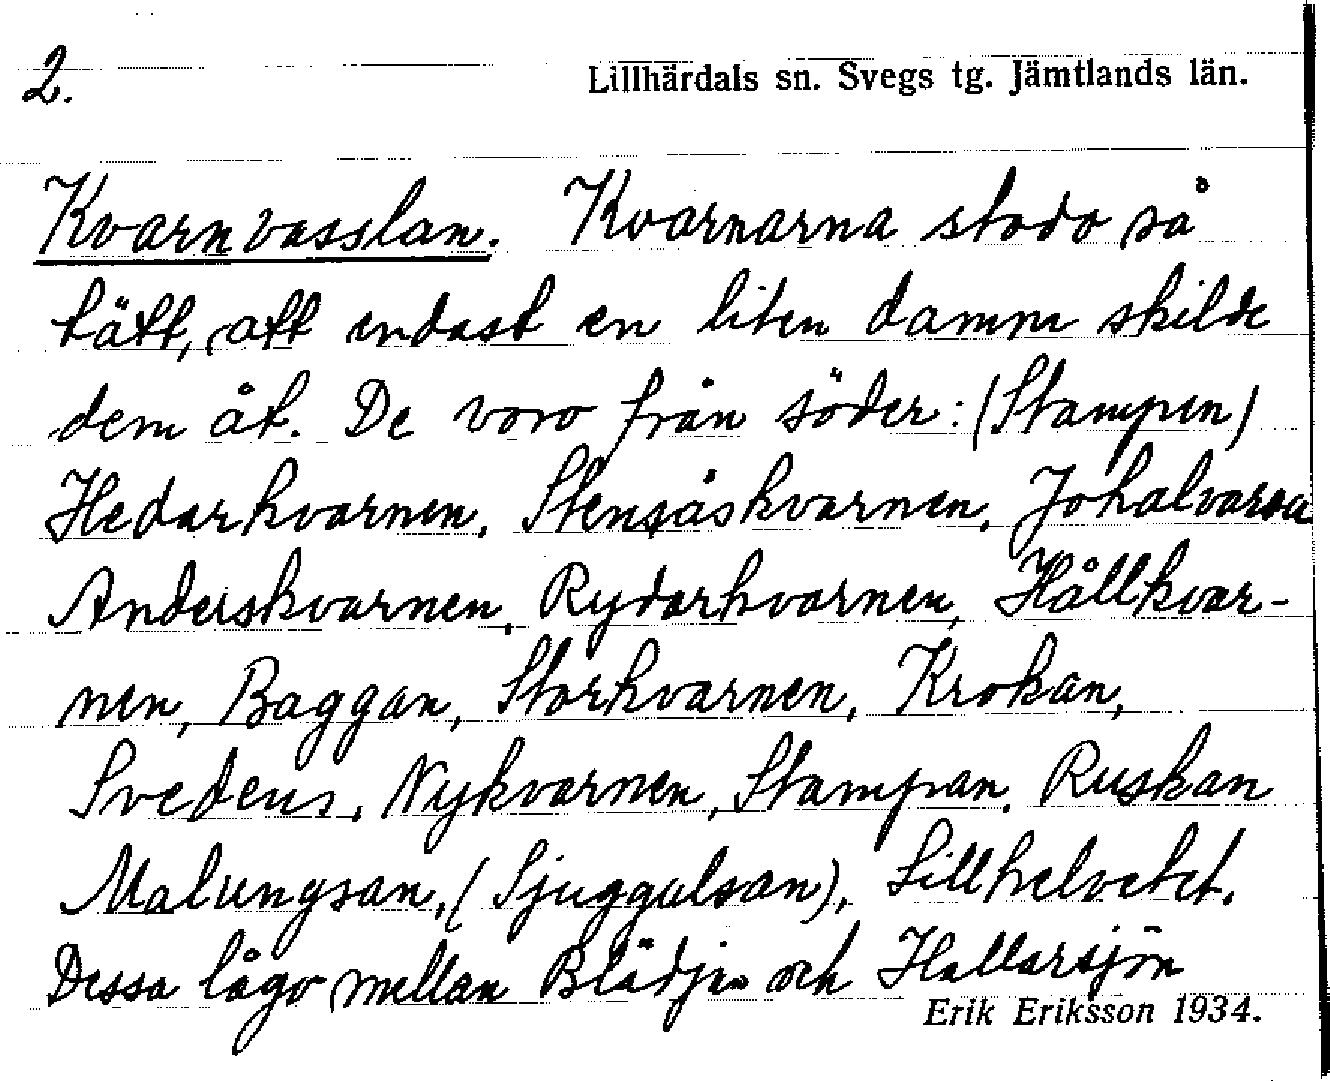 2.
Lillhärdals sn. Svegs tg. Jämtlands län.
Kvarnvasslan. Kvarnarna stodo så
tätt, att endast en liten damm skilde
dem åt. De voro från söder: (Stampen)
Hedarkvarnen, Stensåskvarnen, Johalvarsa
Anderskvarnen, Rydarkvarnen, Hållkvar-
nen, Baggan, Storkvarnen, Krokan,
Svedens, Nykvarnen, Stampan, Ruskan
Malungsan, (Sjuggulsan), Lillhelvetet.
Dessa lågo mellan Blädjan och Hallarsjön
Erik Eriksson 1934.